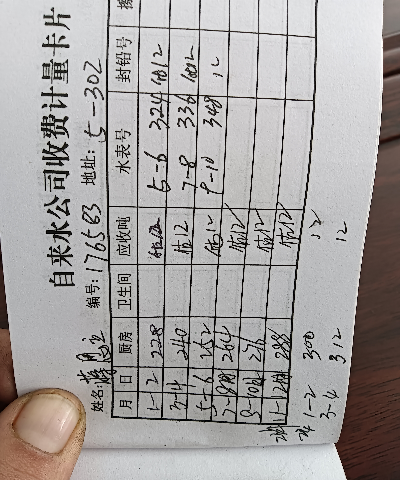 自来水公司收费计量卡片
姓名: 编号: 176563 地址: 5-302
月 日 厨房 卫生间 应收吨 水表号 封铅号
1-2 228 估12 5-6 324 估12
3-4 240 估12 7-8 336 估12
5-6 252 估12 9-10 348 12
7-8月 264 估12
9-10月 276 估12
11-12月 288 估12
1-2 300 12
3-4 312 12